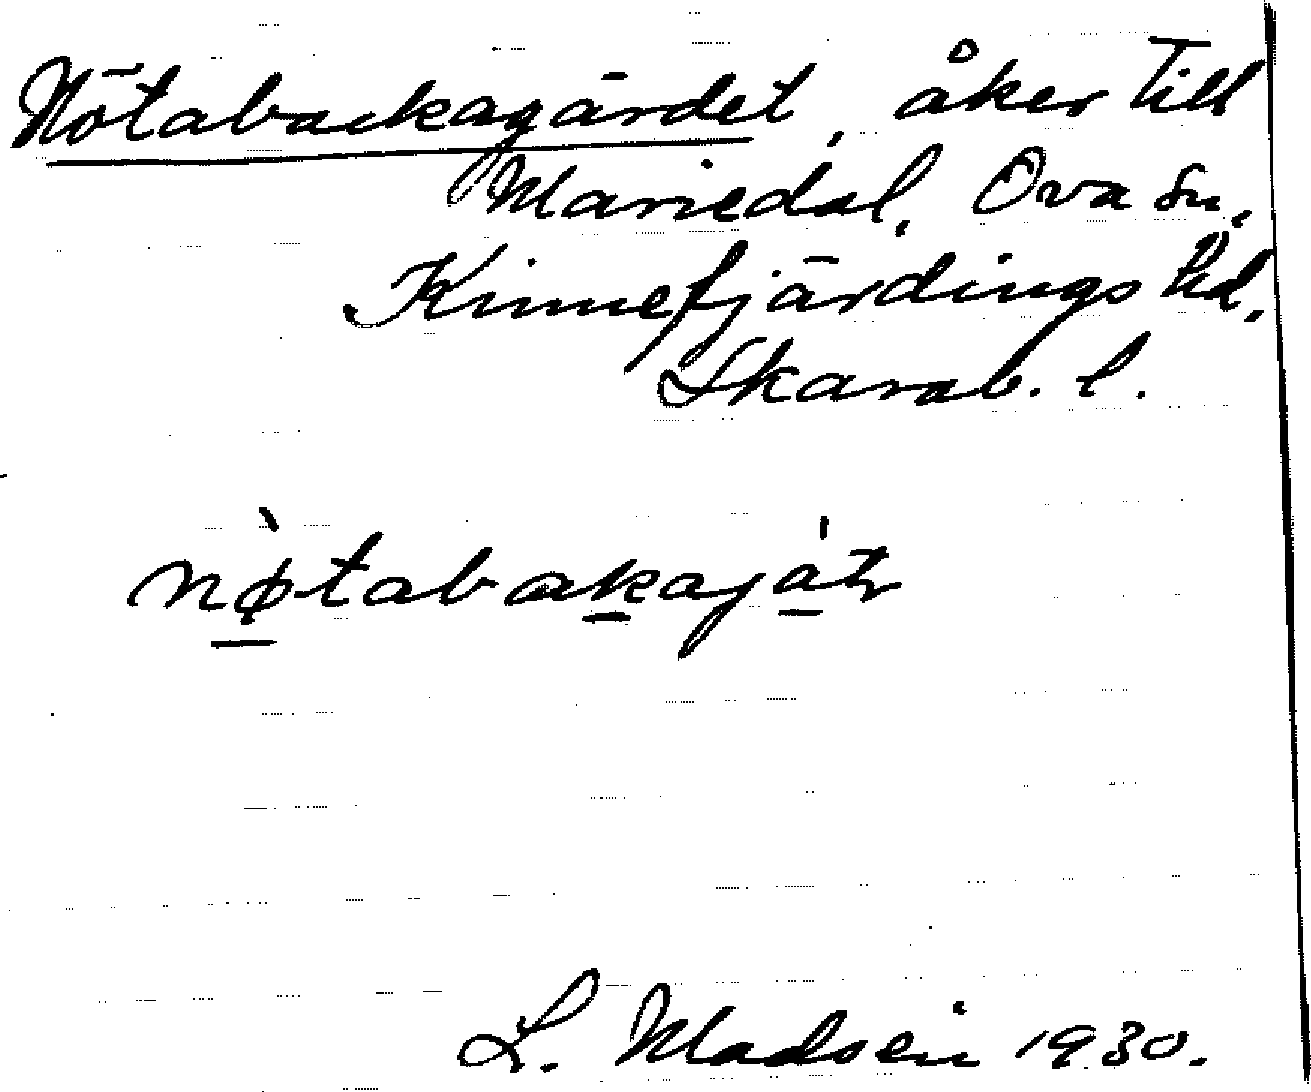 Nötabackagärdet, åker till
Mariedal, Ova sn,
Kinnefjärdings hd.
Skarab. l.
L. Madsén 1930.